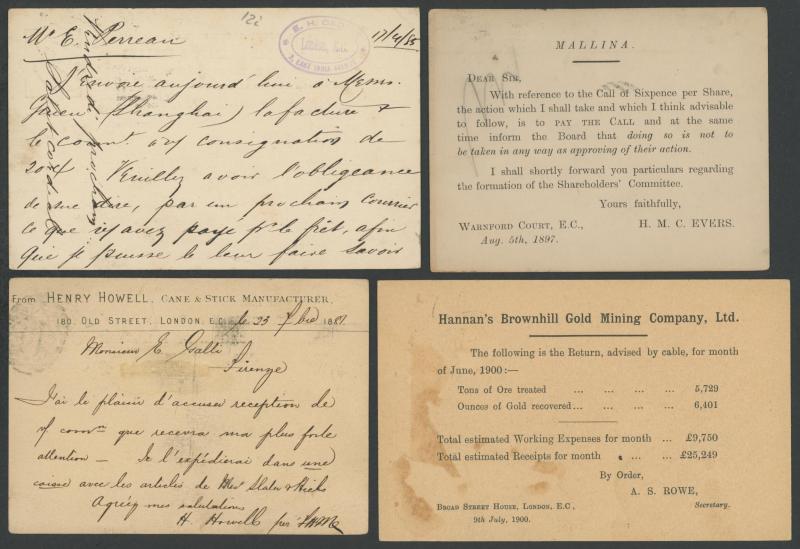 12i
Mr E. Perreau
17/4/85
E. H.
3, EAST INDIA AVENUE
J'envoie aujourd'hui à Messrs.
Shanghai la facture &
le connt. de consignation de
204. Veuillez avoir l'obligeance
de me dire, par un prochain courrier
ce que vs avez payé pr le frêt, afin
que je puisse le leur faire savoir
MALLINA.
DEAR SIR,
With reference to the Call of Sixpence per Share,
the action which I shall take and which I think advisable
to follow, is to PAY THE CALL and at the same
time inform the Board that doing so is not to
be taken in any way as approving of their action.
I shall shortly forward you particulars regarding
the formation of the Shareholders' Committee.
Yours faithfully,
WARNFORD COURT, E.C.,
H. M. C. EVERS.
Aug. 5th, 1897.
From HENRY HOWELL, CANE & STICK MANUFACTURER,
180, OLD STREET, LONDON, E.C. le 23 1881
Monsieur E. Galli
Firenze
J'ai le plaisir d'accuser reception de
v/ commn que recevra ma plus forte
attention — Je l'expédierai dans une
caisse avec les articles de Messrs Slater & Hicks
Agréez mes salutations
H. Howell per
Hannan's Brownhill Gold Mining Company, Ltd.
The following is the Return, advised by cable, for month
of June, 1900:—
Tons of Ore treated ... ... ... 5,729
Ounces of Gold recovered... ... ... 6,401
Total estimated Working Expenses for month ... £9,750
Total estimated Receipts for month ... £25,249
By Order,
A. S. ROWE,
Secretary.
BROAD STREET HOUSE, LONDON, E.C.,
9th July, 1900.